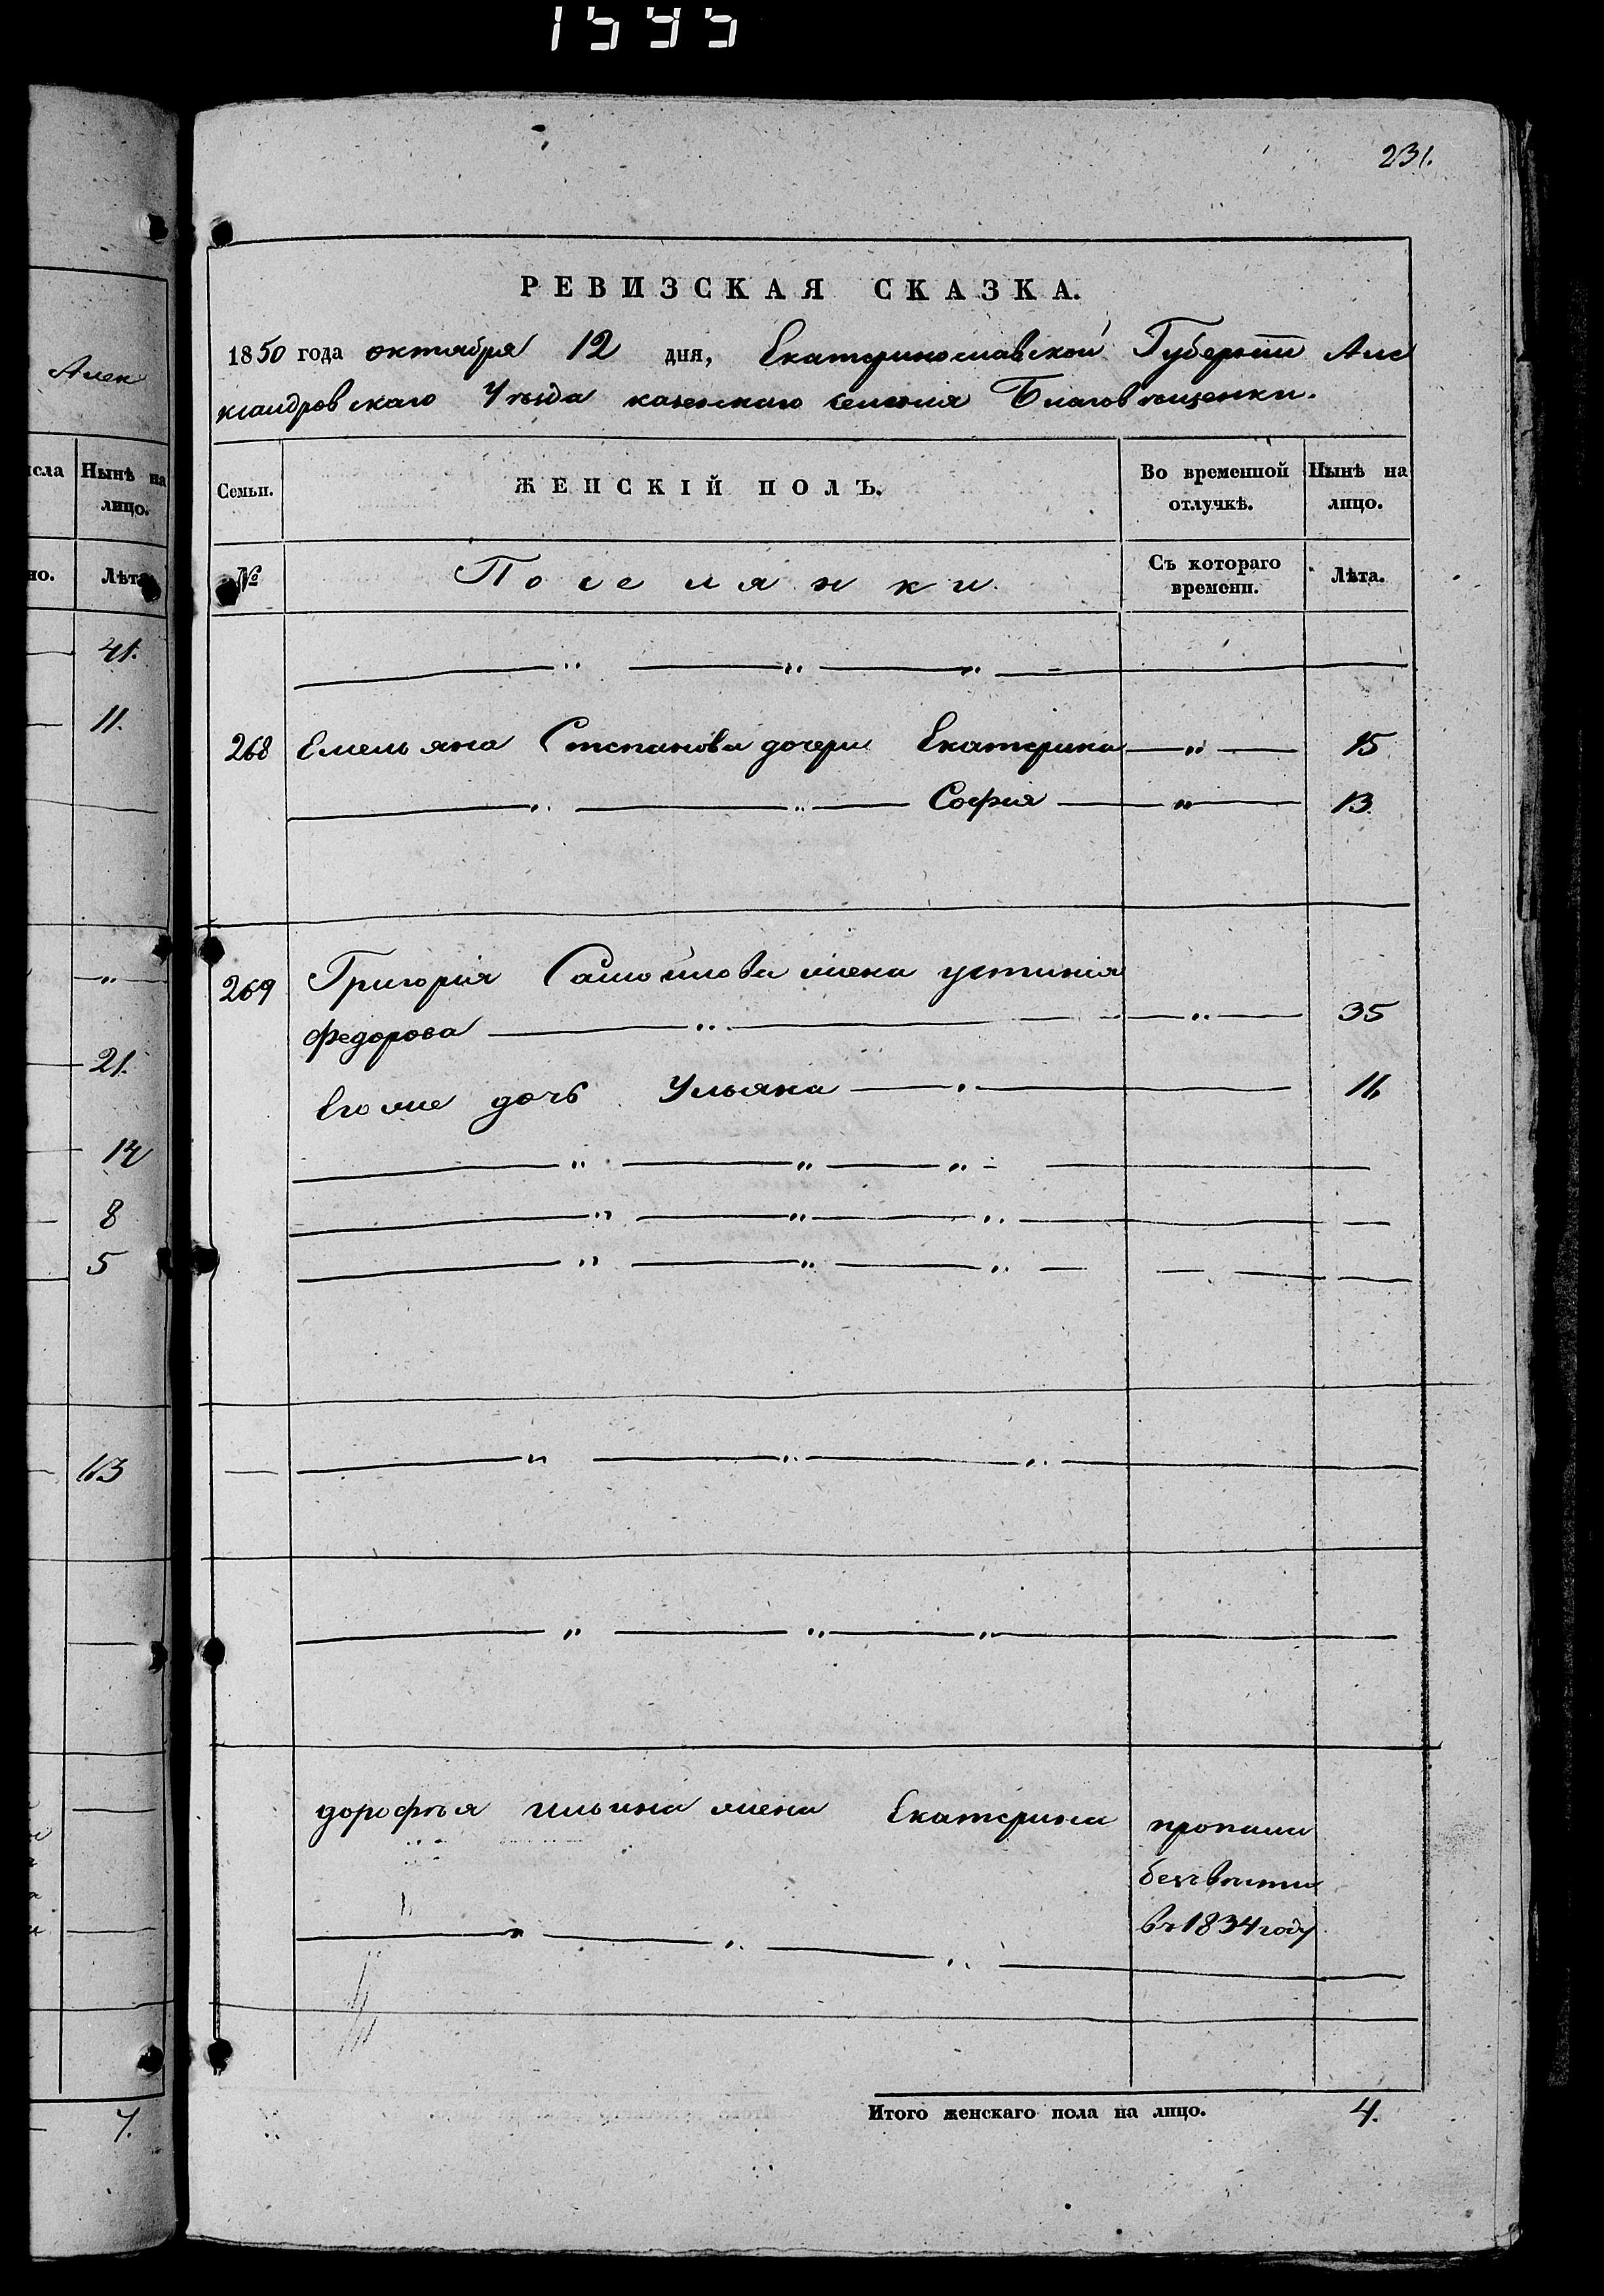 1595
231.
Алек
сла
Нынѣ на
лицо.
но.
Лѣта
41.
11.
"
21.
14
8
5
63
7.
РЕВИЗСКАЯ СКАЗКА.
1850 года октября 12 дня, Екатеринославской Губерніи Але
ксандровскаго Уѣзда казеннаго селенія Благовѣщенки.
Семьи.
ЖЕНСКІЙ ПОЛЪ.
Во временной
отлучкѣ.
Нынѣ на
лицо.
№
Поселянки.
Съ котораго
времени.
Лѣта.
" " "
268 Емельяна Степанова дочери Екатерина " 15
" " София " 13.
269 Григорія Самойлова жена устинія
федорова " " 35
Его же дочь Ульяна " 16
" " "
" " "
" " "
" " "
" " "
дорофѣя ильина жена Екатерина пропали
безъ вѣсти
въ 1834 году
" " "
Итого женскаго пола на лицо. 4.